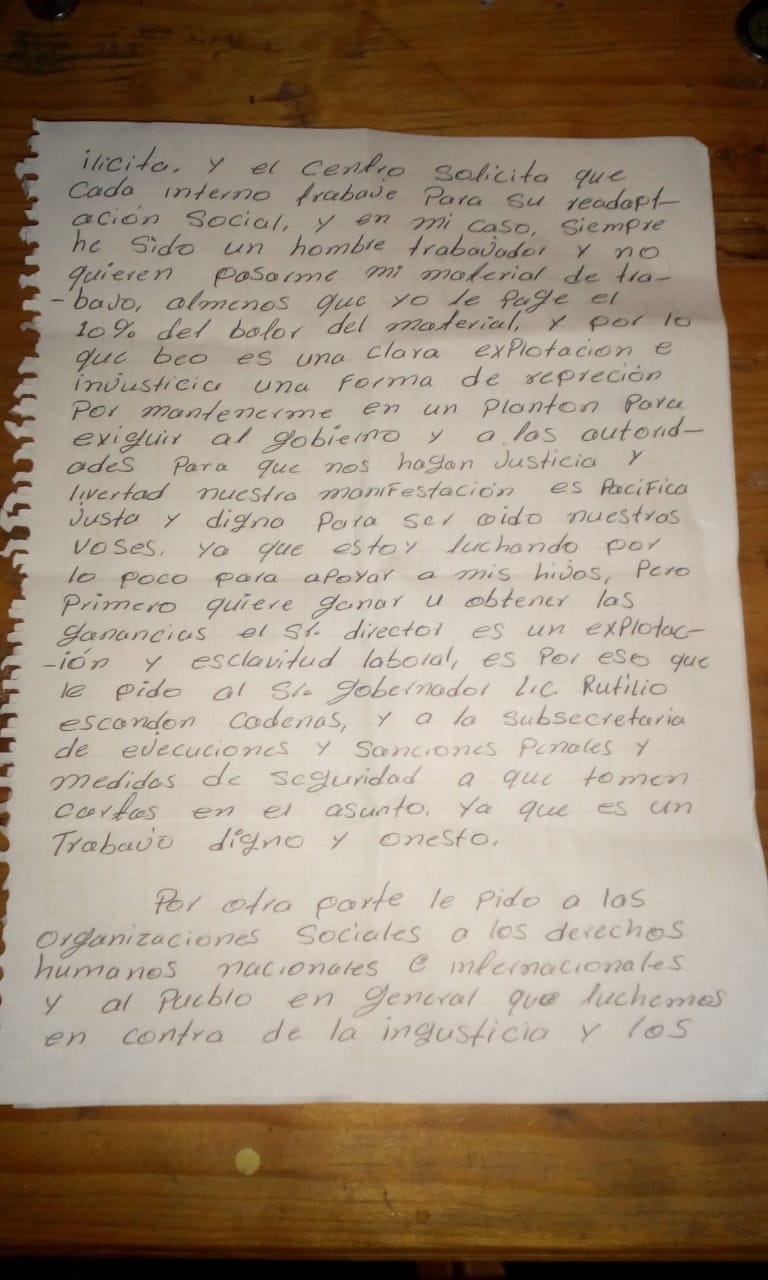 ilicita. y el centro solicita que
cada interno trabaje para su readapt-
ación social, y en mi caso, siempre
he sido un hombre trabajador y no
quieren pasarme mi material de tra-
-bajo, almenos que yo le page el
10% del balor del material, y por lo
que beo es una clara explotacion e
injusticia una forma de repreción
por mantenerme en un planton para
exiguir al gobierno y a las autorid-
ades para que nos hagan justicia y
livertad nuestra manifestación es pacifica
justa y digna para ser oido nuestras
voses. ya que estoy luchando por
lo poco para apoyar a mis hijos, pero
primero quiere ganar u obtener las
ganancias el Sr. director es un explotac-
-ión y esclavitud laboral, es por eso que
le pido al Sr. gobernador Lic. Rutilio
escandon cadenas, y a la subsecretaria
de ejecuciones y sanciones penales y
medidas de seguridad a que tomen
cartas en el asunto. ya que es un
Trabajo digno y onesto.
Por otra parte le pido a las
organizaciones sociales a los derechos
humanos nacionales e internacionales
y al pueblo en general que luchemos
en contra de la ingusticia y los